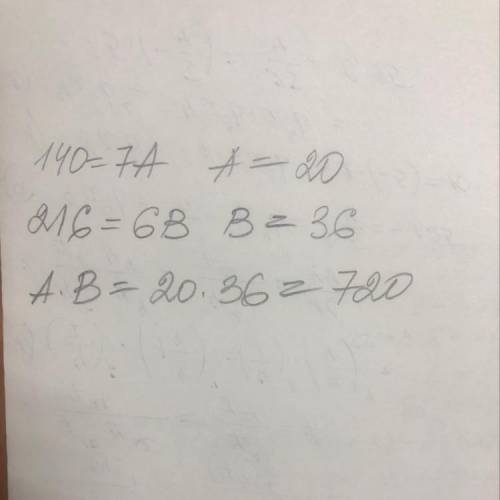 140=7A A=20
216=6B B=36
A·B=20·36=720